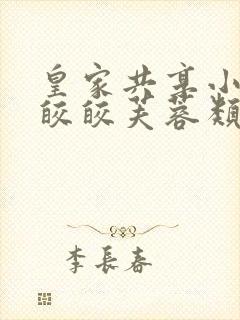 皇家共享小
皎皎芙蓉類
李長春